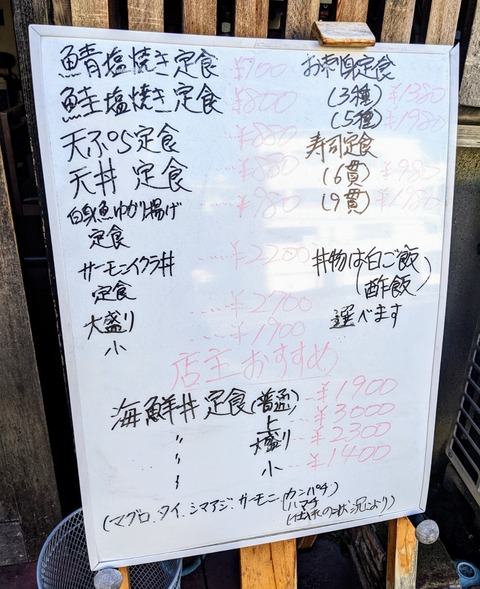 鯖塩焼き定食 ¥900
鮭塩焼き定食 ¥800
天ぷら定食 ¥880
天丼 定食 ¥880
白身魚ゆかり揚げ ¥980
定食
サーモンイクラ丼 ....¥2200
定食
大盛り .....¥2700
小 .....¥1900
お刺身定食
(3種) ¥1380
(5種) ¥1980
寿司定食
(6貫) ¥980
(9貫)
丼物は白ご飯
(酢飯)
選べます
店主おすすめ
海鮮丼 定食(普通) ...¥1900
〃 上 ...¥3000
〃 大盛り ...¥2300
〃 小 ...¥1400
(マグロ.タイ.シマアジ.サーモン.(カンパチ)
ハマチ
(仕入の状況により)